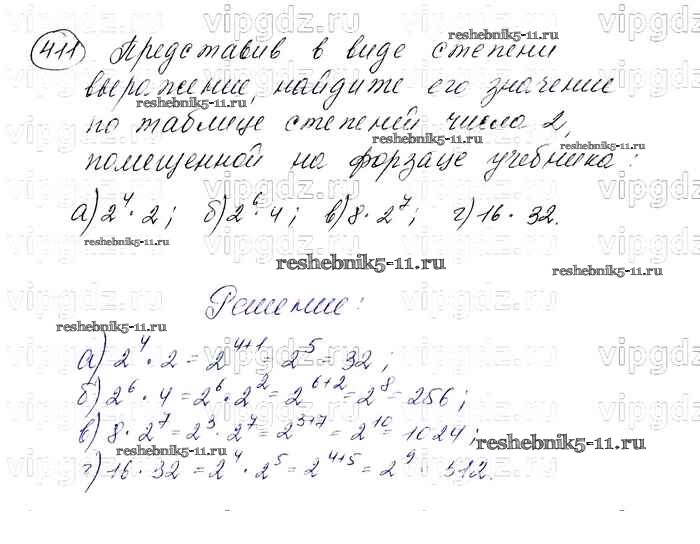 411 Представив в виде степени
выражение, найдите его значение
по таблице степеней числа 2,
помещенной на форзаце учебника:
а) 2⁴ · 2; б) 2⁶ · 4; в) 8 · 2⁷; г) 16 · 32.
reshebnik5-11.ru
Решение:
а) 2⁴ · 2 = 2⁴⁺¹ = 2⁵ = 32;
б) 2⁶ · 4 = 2⁶ · 2² = 2⁶⁺² = 2⁸ = 256;
в) 8 · 2⁷ = 2³ · 2⁷ = 2³⁺⁷ = 2¹⁰ = 1024;
г) 16 · 32 = 2⁴ · 2⁵ = 2⁴⁺⁵ = 2⁹ = 512.
vipgdz.ru